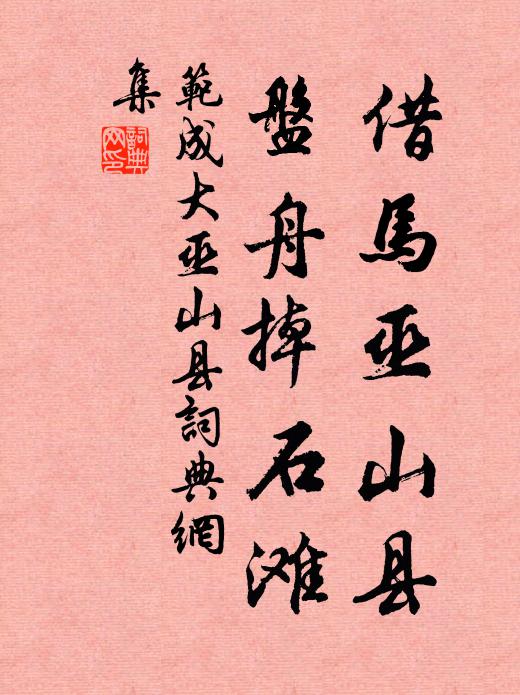 借馬巫山县
盤舟掉石滩
範成大巫山县詞典網
集
詞典
网印